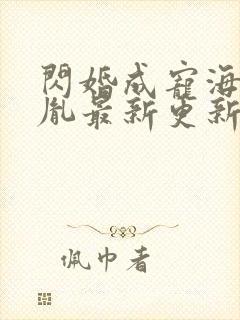 閃婚成寵海
胤最新更新
佩巾者